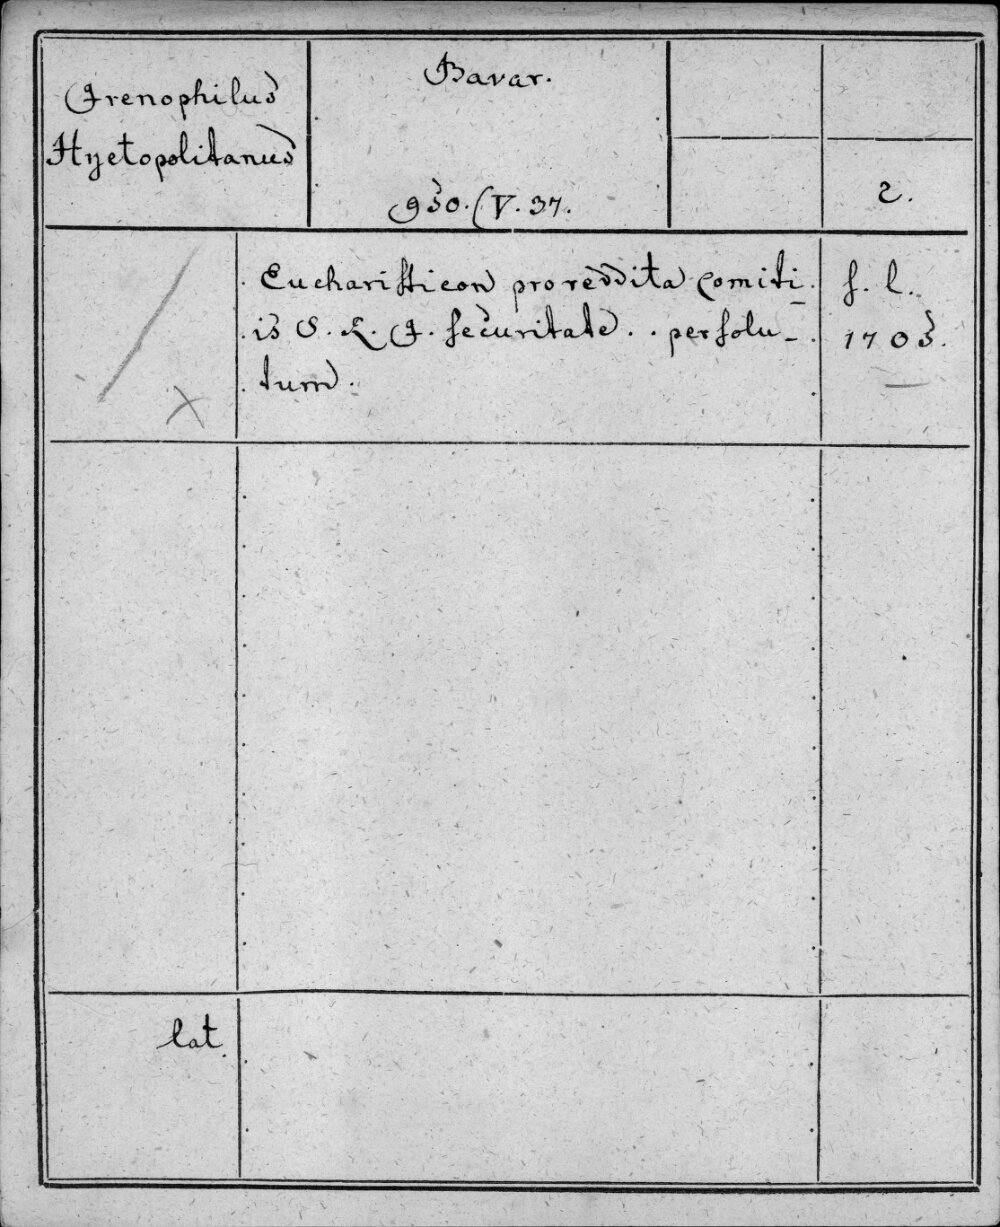 Irenophilus
Hyetopolitanus
Bavar.
980. (V. 37.
2.
Eucharisticon pro reddita Comiti-
is S. R. I. securitate . . persolu-
tum.
s. l.
1703.
lat.